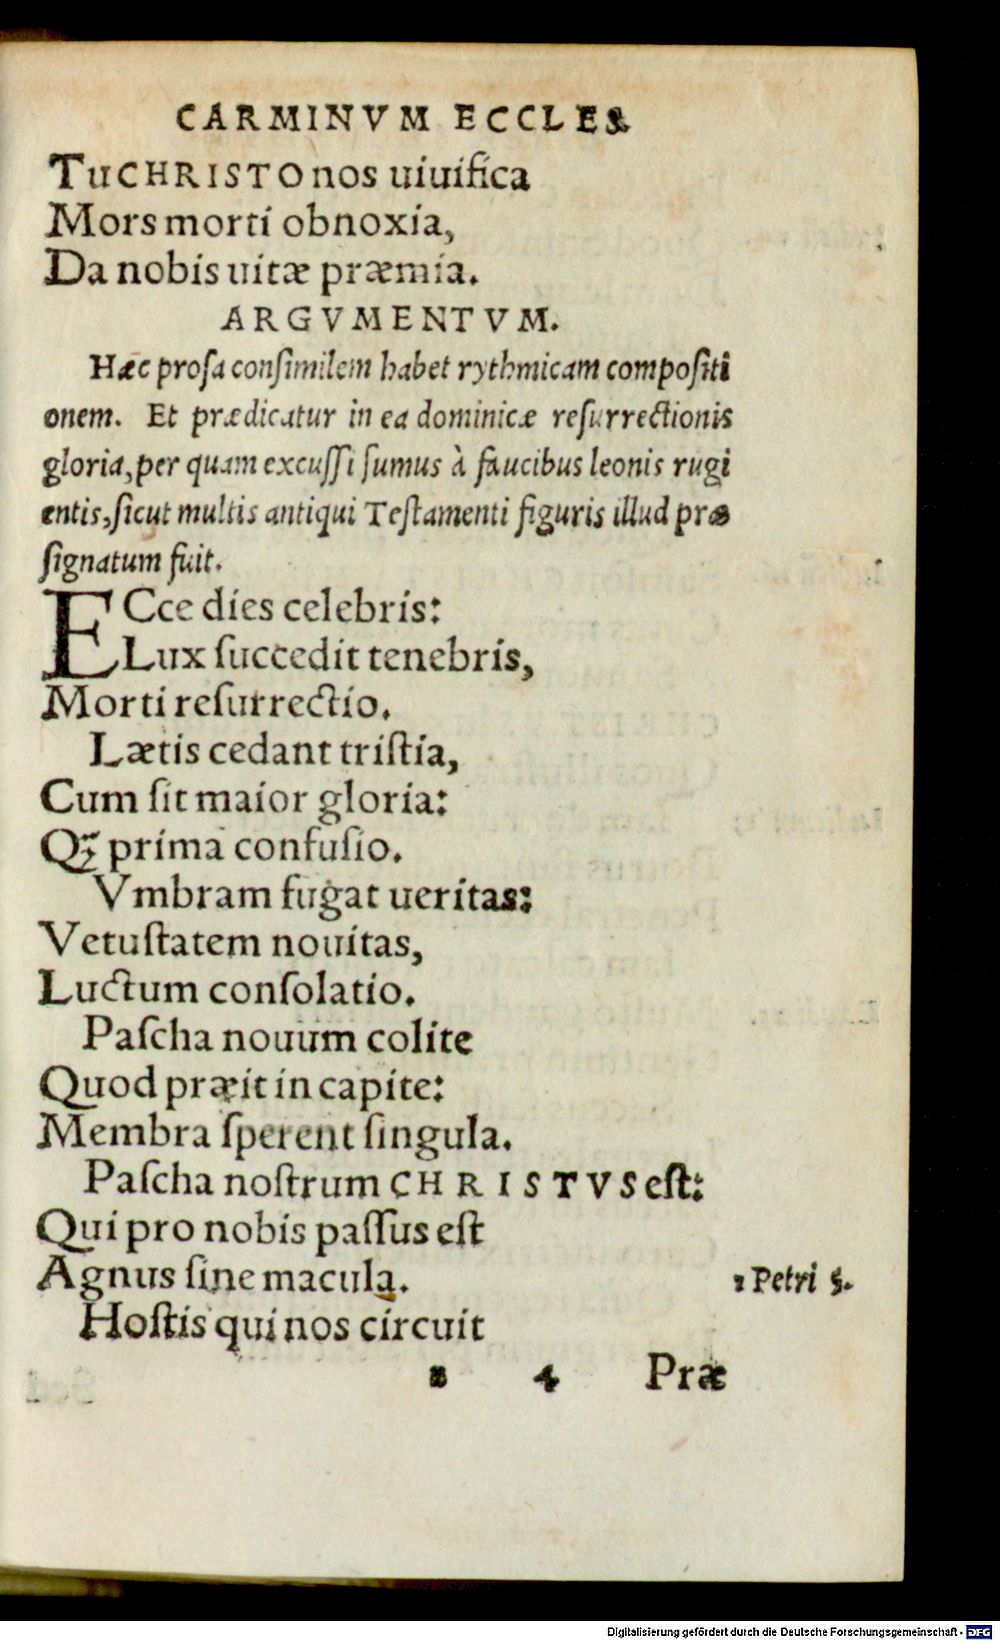 CARMINVM ECCLES.
Tu CHRISTO nos uiuifica
Mors morti obnoxia,
Da nobis uitæ præmia.
ARGVMENTVM.
Hæc proſa conſimilem habet rythmicam compoſiti
onem. Et prædicatur in ea dominicæ reſurrectionis
gloria, per quam excuſſi ſumus à faucibus leonis rugi
entis, ſicut multis antiqui Teſtamenti figuris illud præ
ſignatum fuit.
ECce dies celebris:
Lux ſuccedit tenebris,
Morti reſurrectio.
Lætis cedant triſtia,
Cum ſit maior gloria:
Qꝫ prima confuſio.
Vmbram fugat ueritas:
Vetuſtatem nouitas,
Luctum conſolatio.
Paſcha nouum colite
Quod præit in capite:
Membra ſperent ſingula.
Paſcha noſtrum CHRISTVS eſt:
Qui pro nobis paſſus eſt
Agnus ſine macula.
1 Petri 5.
Hoſtis qui nos circuit
4 Præ
Digitalisierung gefördert durch die Deutsche Forschungsgemeinschaft - DFG